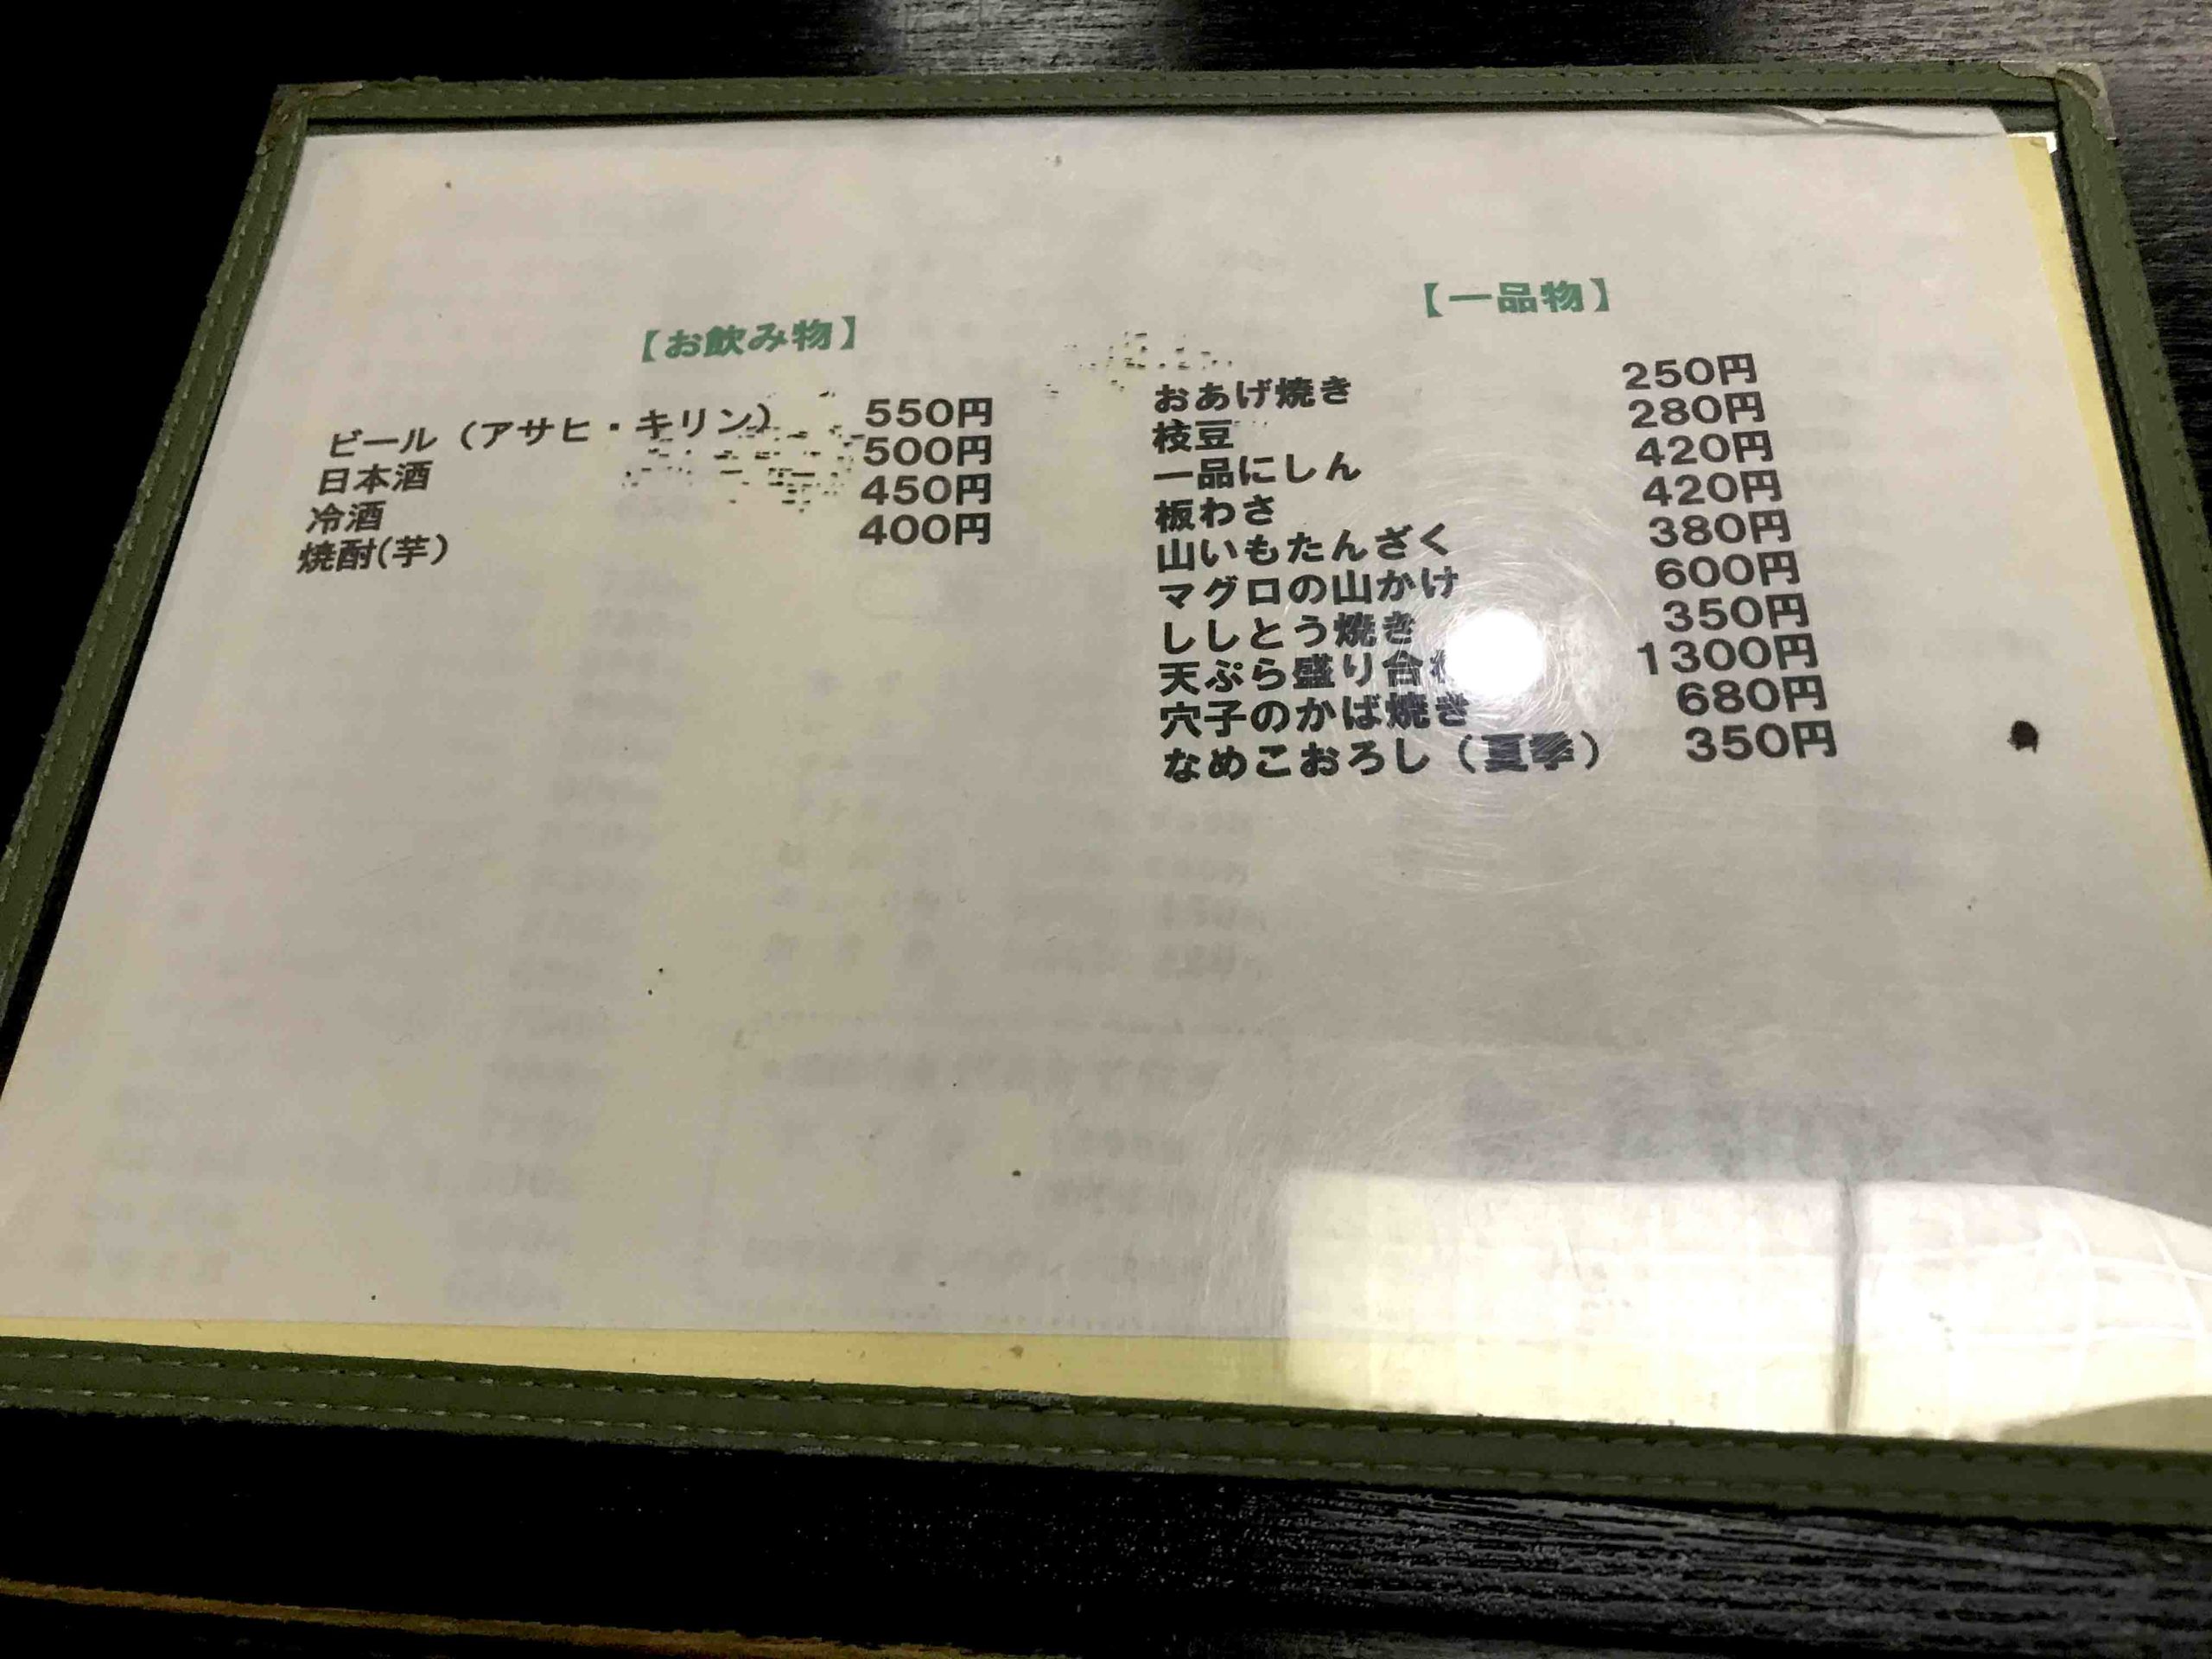 【お飲み物】
ビール（アサヒ・キリン） 550円
日本酒 500円
冷酒 450円
焼酎(芋) 400円
【一品物】
おあげ焼き 250円
枝豆 280円
一品にしん 420円
板わさ 420円
山いもたんざく 380円
マグロの山かけ 600円
ししとう焼き 350円
天ぷら盛り合わ 1300円
穴子のかば焼き 680円
なめこおろし（夏季） 350円